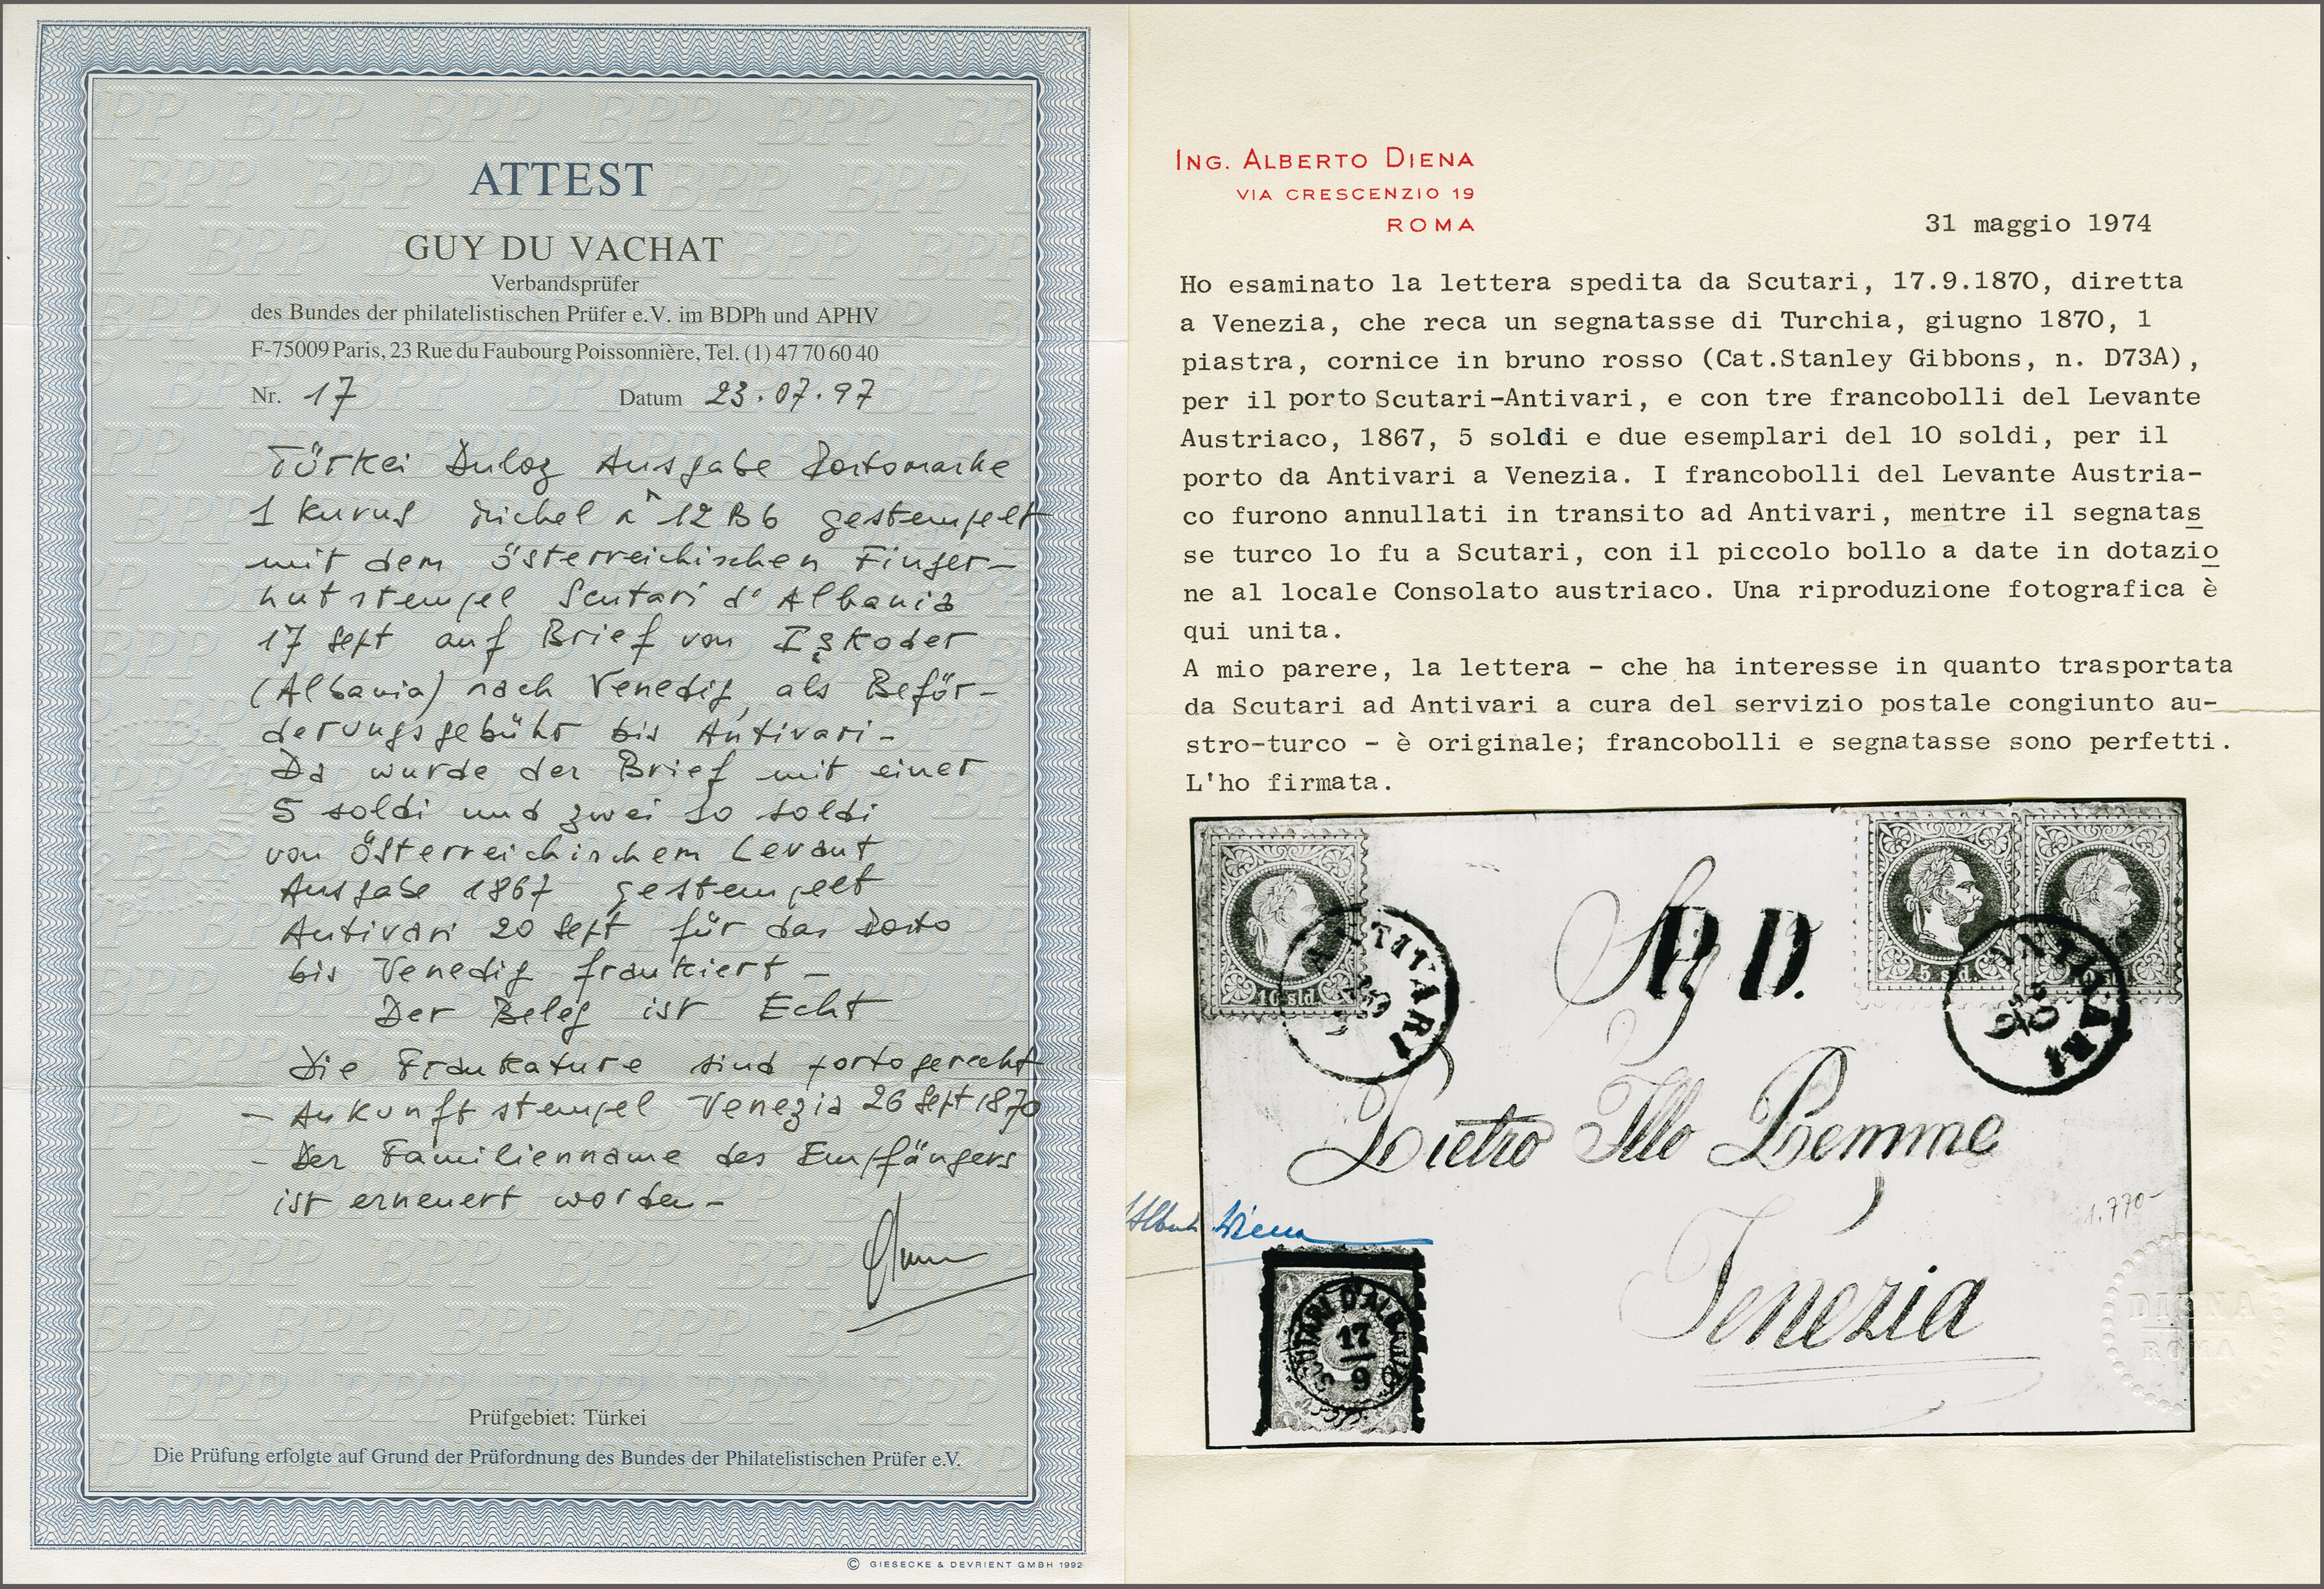 ATTEST
GUY DU VACHAT
Verbandsprüfer
des Bundes der philatelistischen Prüfer e.V. im BDPh und APHV
F-75009 Paris, 23 Rue du Faubourg Poissonnière, Tel. (1) 47 70 60 40
Nr. 17 Datum 23.07.97
Türkei Duloz Ausgabe Portomarke
1 Kuruş Michel n° 12 B b gestempelt
mit dem österreichischen Finger-
hutstempel Scutari d'Albania
17 Sept auf Brief von Işkoder
(Albania) nach Venedig, als Beför-
derungsgebühr bis Antivari-
Da wurde der Brief mit einer
5 soldi und zwei 10 soldi
von österreichischem Levant
Ausgabe 1867 gestempelt
Antivari 20 Sept für das Porto
bis Venedig frankiert -
Der Beleg ist Echt
Die Frankature sind portogerecht
- Ankunftstempel Venezia 26 Sept 1870
- Der Familienname des Empfängers
ist erneuert worden -
Prüfgebiet: Türkei
Die Prüfung erfolgte auf Grund der Prüfordnung des Bundes der Philatelistischen Prüfer e.V.
© GIESECKE & DEVRIENT GMBH 1992
ING. ALBERTO DIENA
VIA CRESCENZIO 19
ROMA
31 maggio 1974
Ho esaminato la lettera spedita da Scutari, 17.9.1870, diretta
a Venezia, che reca un segnatasse di Turchia, giugno 1870, 1
piastra, cornice in bruno rosso (Cat.Stanley Gibbons, n. D73A),
per il porto Scutari-Antivari, e con tre francobolli del Levante
Austriaco, 1867, 5 soldi e due esemplari del 10 soldi, per il
porto da Antivari a Venezia. I francobolli del Levante Austria-
co furono annullati in transito ad Antivari, mentre il segnatas
se turco lo fu a Scutari, con il piccolo bollo a date in dotazio
ne al locale Consolato austriaco. Una riproduzione fotografica è
qui unita.
A mio parere, la lettera - che ha interesse in quanto trasportata
da Scutari ad Antivari a cura del servizio postale congiunto au-
stro-turco - è originale; francobolli e segnatasse sono perfetti.
L'ho firmata.
10 sld.
5 sld.
ANTIVARI
P.D.
ANTIVARI
20
9
Pietro
Venezia
1.770-
Diena
SCUTARI D'ALBANIA
17
9
DIENA
ROMA